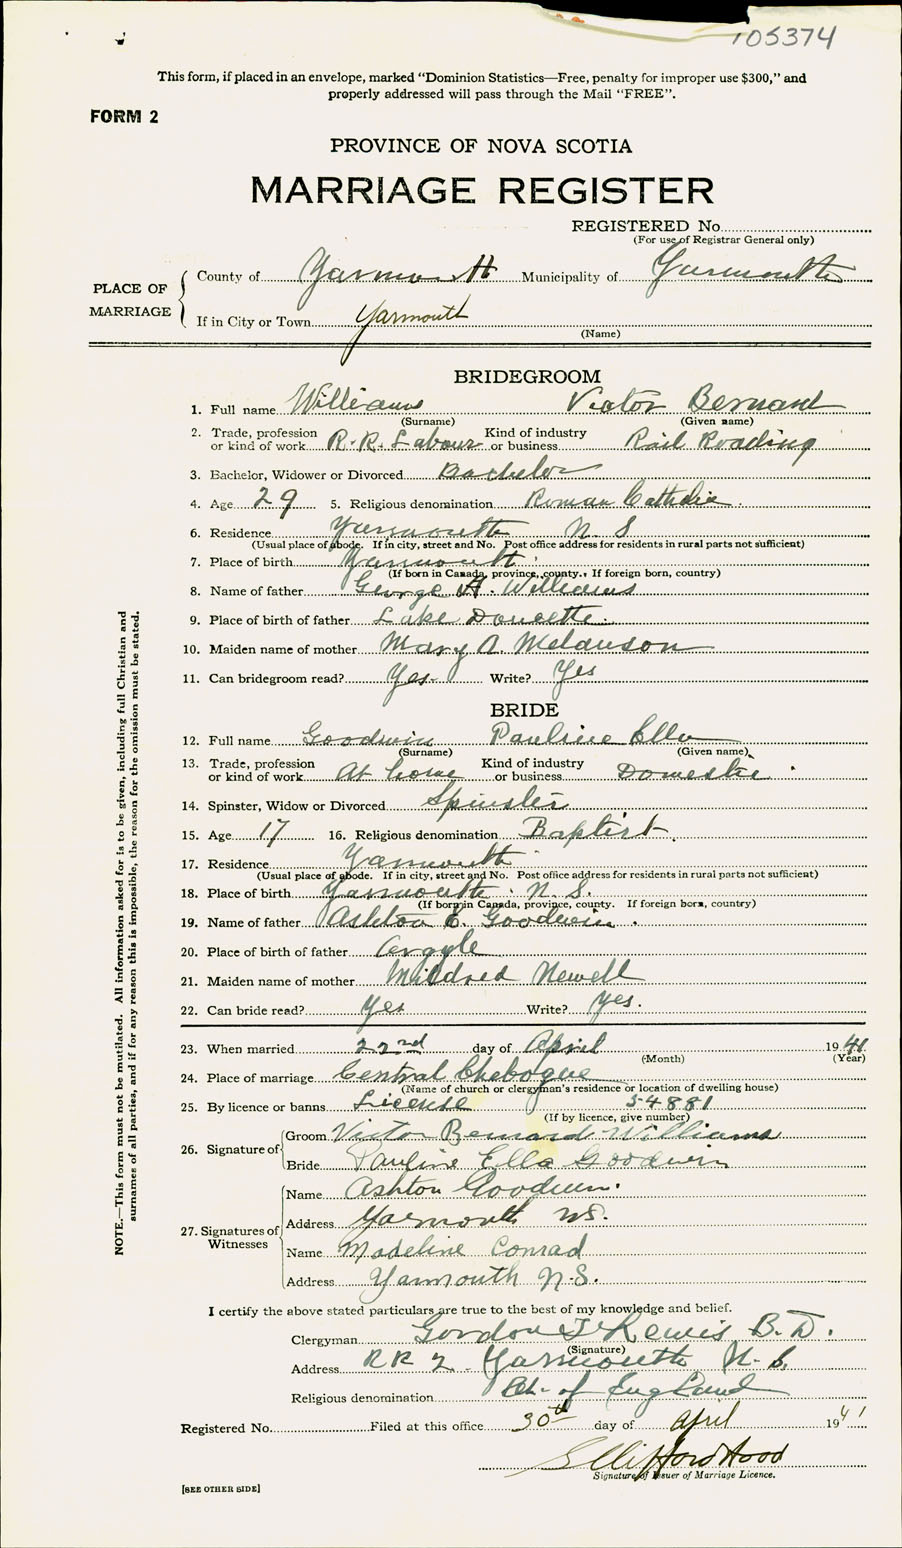 105374
This form, if placed in an envelope, marked "Dominion Statistics—Free, penalty for improper use $300," and
properly addressed will pass through the Mail "FREE".
FORM 2
PROVINCE OF NOVA SCOTIA
MARRIAGE REGISTER
REGISTERED No.
(For use of Registrar General only)
PLACE OF MARRIAGE
County of Yarmouth Municipality of Yarmouth
If in City or Town Yarmouth
(Name)
BRIDEGROOM
1. Full name Williams Victor Bernard
(Surname) (Given name)
2. Trade, profession or kind of work R.R. Labour Kind of industry or business Rail Roading
3. Bachelor, Widower or Divorced Bachelor
4. Age 29 5. Religious denomination Roman Catholic.
6. Residence Yarmouth N.S
(Usual place of abode. If in city, street and No. Post office address for residents in rural parts not sufficient)
7. Place of birth Yarmouth
(If born in Canada, province, county. If foreign born, country)
8. Name of father George A. Williams
9. Place of birth of father Lake Doucette.
10. Maiden name of mother Mary A. Melanson
11. Can bridegroom read? Yes Write? Yes
BRIDE
12. Full name Goodwin Pauline Ella
(Surname) (Given name)
13. Trade, profession or kind of work At home Kind of industry or business Domestic
14. Spinster, Widow or Divorced Spinster
15. Age 17 16. Religious denomination Baptist
17. Residence Yarmouth
(Usual place of abode. If in city, street and No. Post office address for residents in rural parts not sufficient)
18. Place of birth Yarmouth N.S.
(If born in Canada, province, county. If foreign born, country)
19. Name of father Ashton E. Goodwin.
20. Place of birth of father Argyle
21. Maiden name of mother Mildred Newell
22. Can bride read? Yes Write? Yes.
23. When married 22nd day of April 1941
(Month) (Year)
24. Place of marriage Central Chebogue
(Name of church or clergyman's residence or location of dwelling house)
25. By licence or banns License 54881
(If by licence, give number)
26. Signature of
Groom Victor Bernard Williams
Bride Pauline Ella Goodwin
27. Signatures of Witnesses
Name Ashton Goodwin.
Address Yarmouth NS.
Name Madeline Conrad
Address Yarmouth N.S.
I certify the above stated particulars are true to the best of my knowledge and belief.
Clergyman Gordon F Lewis B.D.
(Signature)
Address RR 2 Yarmouth N.S.
Religious denomination Ch. of England
Registered No. Filed at this office 30th day of April 1941
Signature of Issuer of Marriage Licence.
[SEE OTHER SIDE]
NOTE.—This form must not be mutilated. All information asked for is to be given, including full Christian and
surnames of all parties, and if for any reason this is impossible, the reason for the omission must be stated.